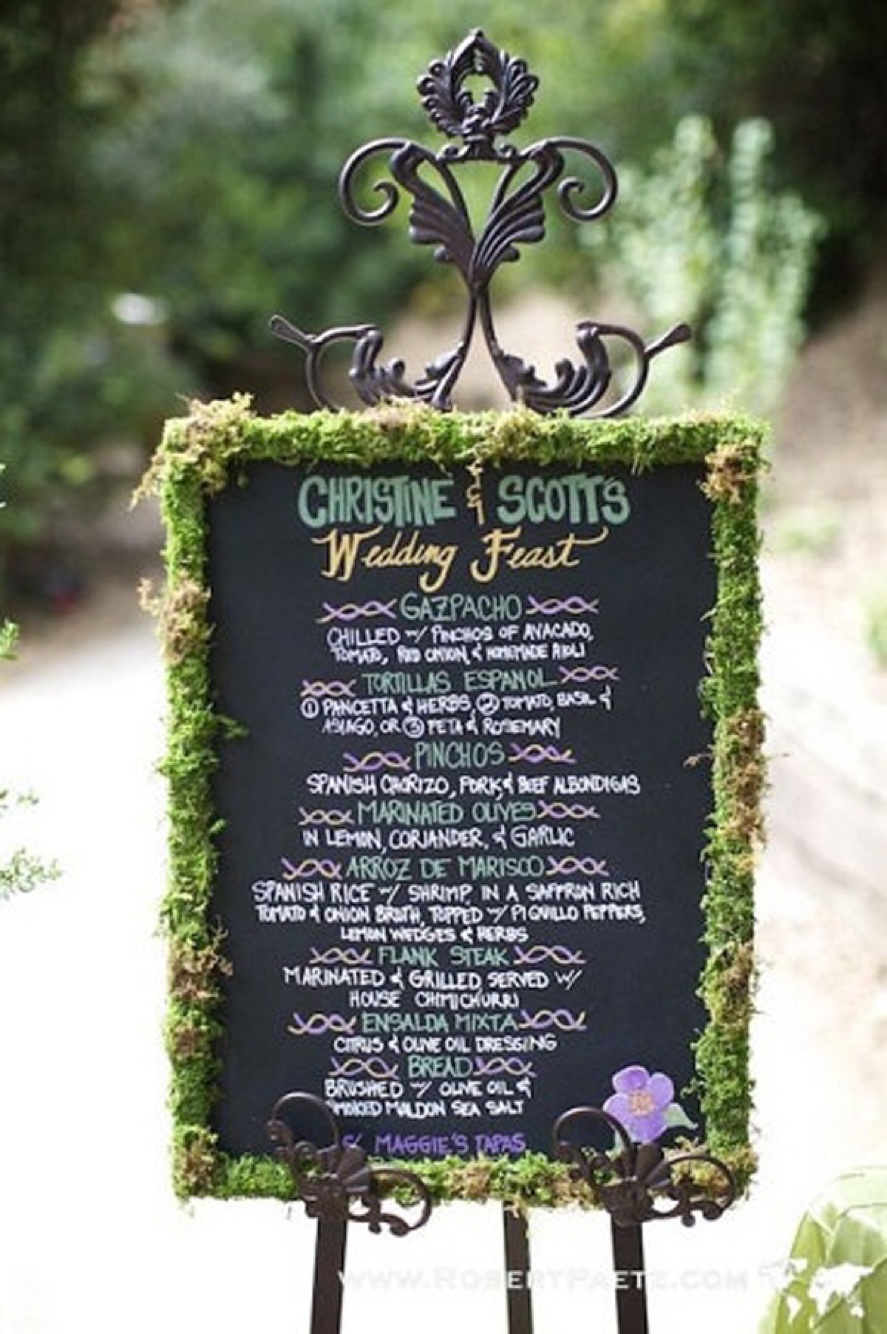 CHRISTINE & SCOTT'S
Wedding Feast
GAZPACHO
CHILLED W/ PINCHOS OF AVACADO,
TOMATO, RED ONION, & HOMEMADE AIOLI
TORTILLAS ESPANOL
① PANCETTA & HERBS, ② TOMATO, BASIL &
ASIAGO, OR ③ FETA & ROSEMARY
PINCHOS
SPANISH CHORIZO, PORK, & BEEF ALBONDIGAS
MARINATED OLIVES
IN LEMON, CORIANDER, & GARLIC
ARROZ DE MARISCO
SPANISH RICE W/ SHRIMP IN A SAFFRON RICH
TOMATO & ONION BROTH, TOPPED W/ PIQUILLO PEPPERS,
LEMON WEDGES & HERBS
FLANK STEAK
MARINATED & GRILLED SERVED W/
HOUSE CHIMICHURRI
ENSALDA MIXTA
CITRUS & OLIVE OIL DRESSING
BREAD
BRUSHED W/ OLIVE OIL &
SMOKED MALDON SEA SALT
MAGGIE'S TAPAS
WWW.ROBERTPAETZ.COM